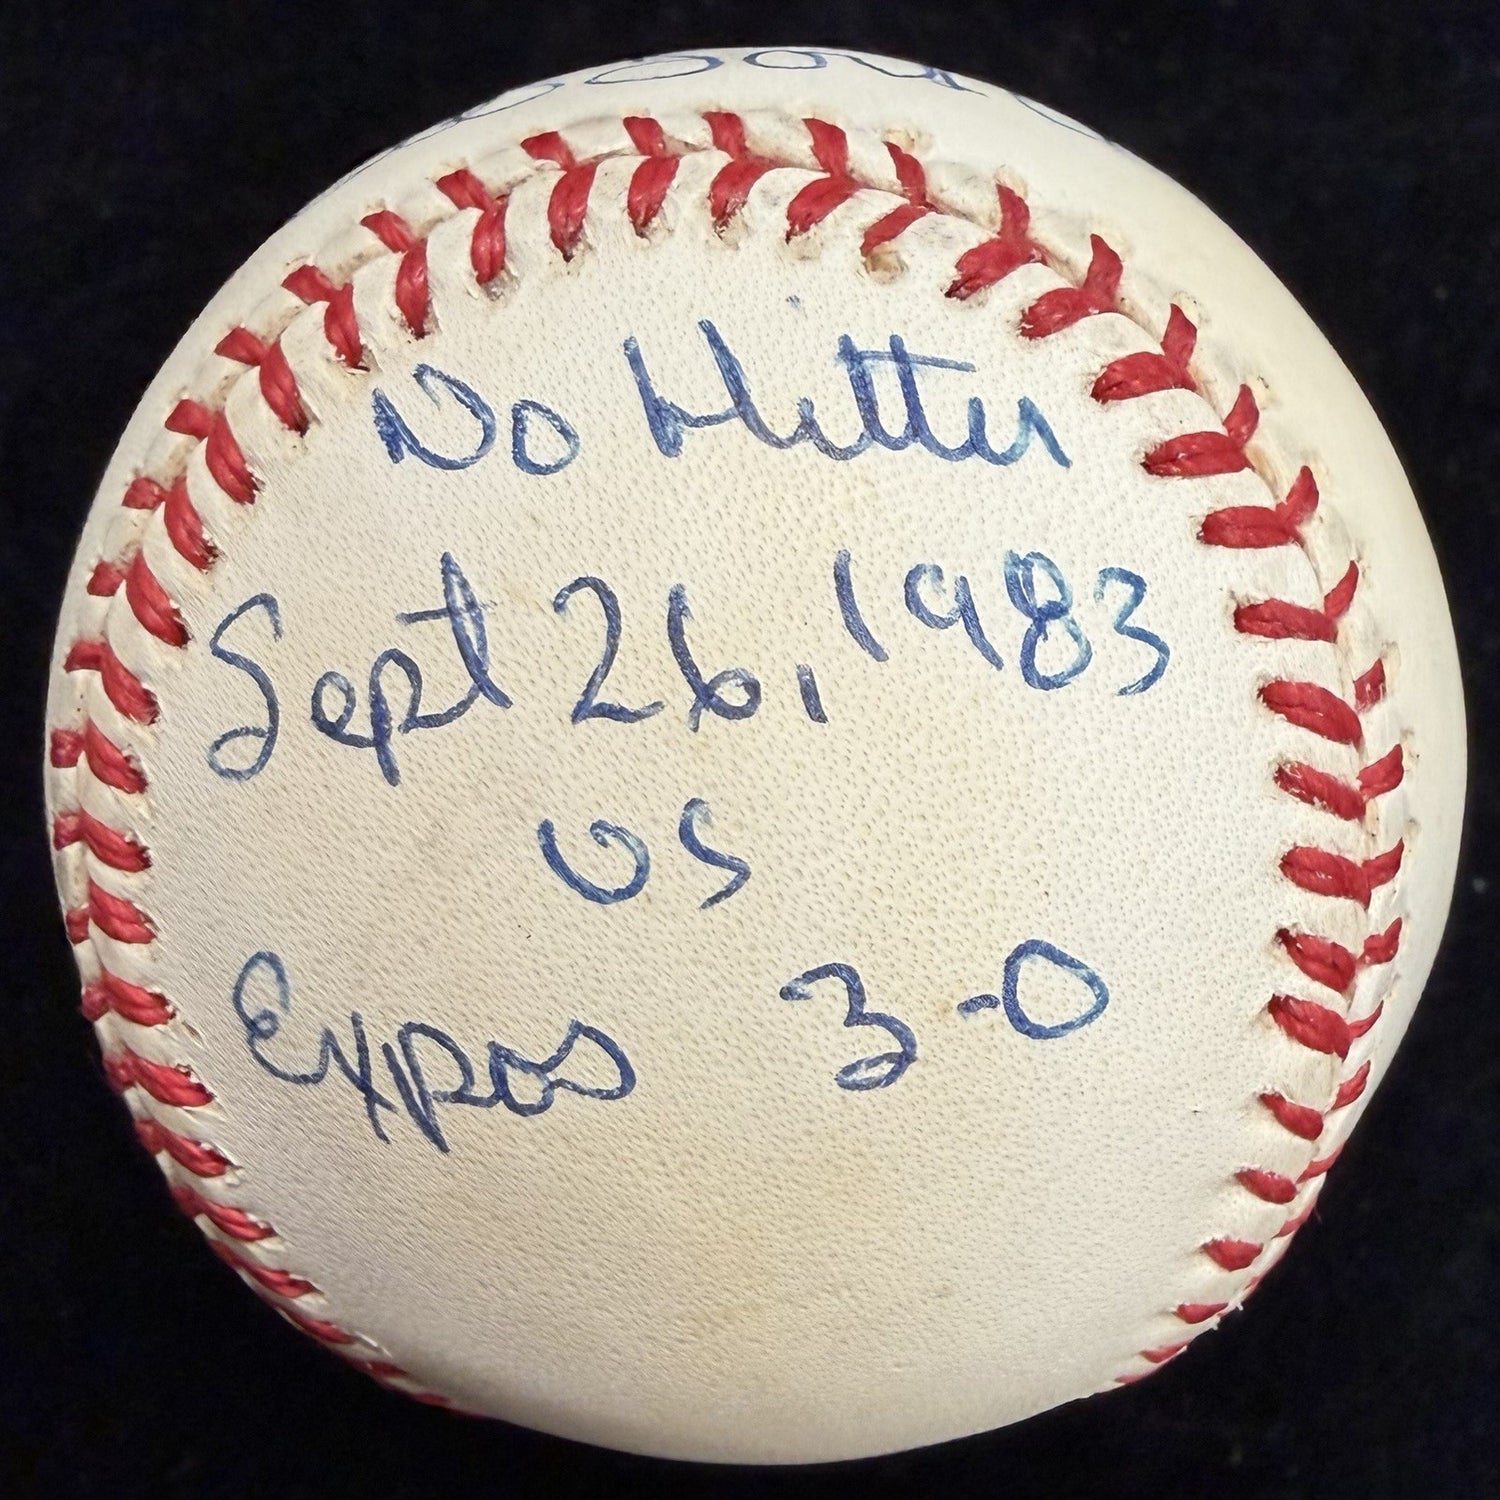 No Hitter
Sept 26, 1983
vs
Expos 3-0